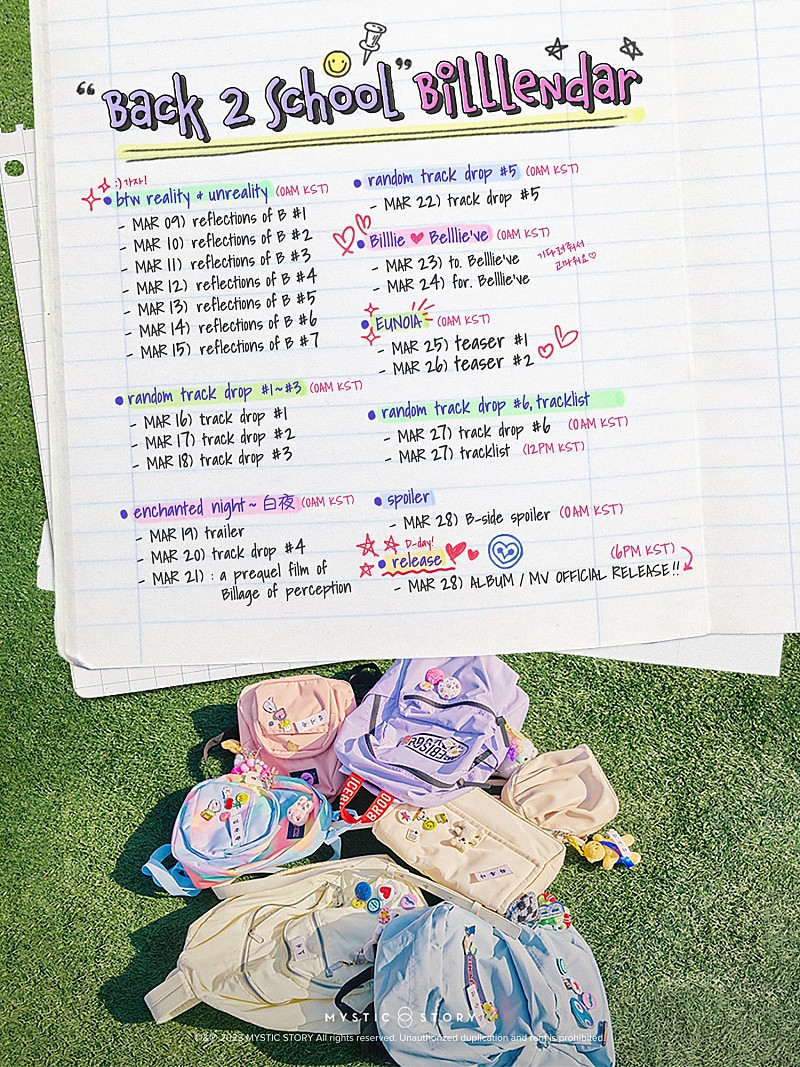 “Back 2 School” Billlendar
:) 가자!
• btw reality & unreality (0AM KST)
- MAR 09) reflections of B #1
- MAR 10) reflections of B #2
- MAR 11) reflections of B #3
- MAR 12) reflections of B #4
- MAR 13) reflections of B #5
- MAR 14) reflections of B #6
- MAR 15) reflections of B #7
• random track drop #1~#3 (0AM KST)
- MAR 16) track drop #1
- MAR 17) track drop #2
- MAR 18) track drop #3
• enchanted night ~ 白夜 (0AM KST)
- MAR 19) trailer
- MAR 20) track drop #4
- MAR 21) : a prequel film of
Billage of perception
• random track drop #5 (0AM KST)
- MAR 22) track drop #5
• Billlie ♥ Belllie've (0AM KST)
- MAR 23) to. Belllie've
- MAR 24) for. Belllie've
기다려줘서
고마워♡
• EUNOIA (0AM KST)
- MAR 25) teaser #1
- MAR 26) teaser #2
• random track drop #6, tracklist
- MAR 27) track drop #6 (0AM KST)
- MAR 27) tracklist (12PM KST)
• spoiler
- MAR 28) B-side spoiler (0AM KST)
D-day!
• release
(6PM KST)
- MAR 28) ALBUM / MV OFFICIAL RELEASE!!
MYSTIC STORY
©&℗ 2023 MYSTIC STORY All rights reserved. Unauthorized duplication and rent is prohibited.